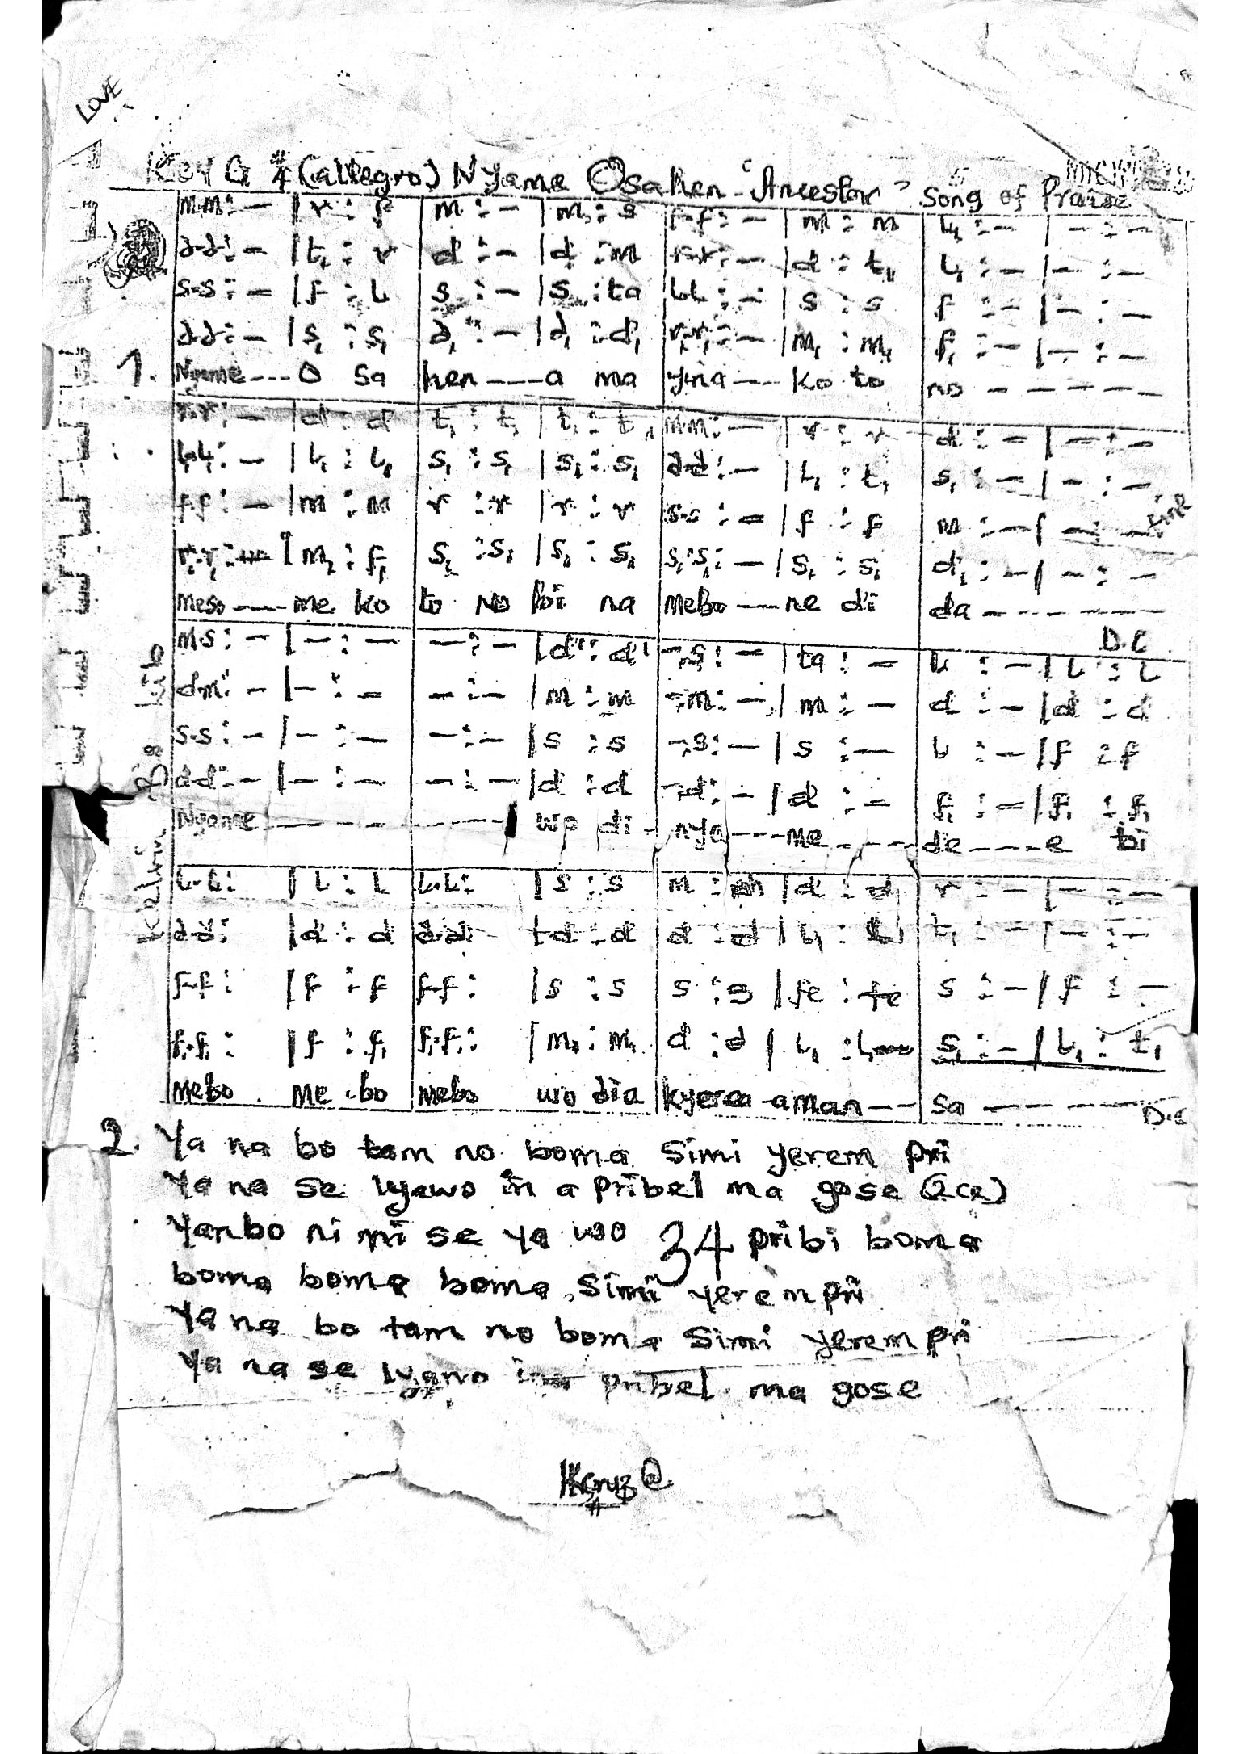 LOVE
Key G 4/4 (allegro) Nyame Osahen - 'Ancestor' Song of Praise
m.m:- |r : f | m :- |m : s | f.f:- |m : m | l₁ :- |- :-
d.d:- |t₁ : r | d :- |d : m | r.r:- |d : t₁ | l₁ :- |- :-
s.s:- |f : l | s :- |s : ta | l.l:- |s : s | f :- |- :-
d.d:- |s₁ : s₁ | d₁ :- |d₁ : d₁ | r₁.r₁:- |m₁ : m₁ | f₁ :- |- :-
1. Nyame---O sa hen----a ma yina---ko to no - - - - -
r.r:- |d : d | t₁ : t₁ |t₁ : t₁ | m.m:- |r : r | d :- |- :-
l₁.l₁:- |l₁ : l₁ | s₁ : s₁ |s₁ : s₁ | d.d:- |l₁ : t₁ | s₁ :- |- :-
f.f:- |m : m | r : r |r : r | s.s:- |f : f | m :- |- :- Fine
r.r:- |m₁ : f₁ | s₁ : s₁ |s₁ : s₁ | s₁.s₁:- |s₁ : s₁ | d₁ :- |- :-
meso----me ko to no boi na mebo---ne di da - - - - - -
D.C
m.s:- |- :- | - :- |d' : d' | -.s:- |ta :- | l :- |l : l
d.m:- |- :- | - :- |m : m | -.m:- |m :- | d :- |d : d
s.s:- |- :- | - :- |s : s | -.s:- |s :- | l :- |f : f
d.d:- |- :- | - :- |d : d | -.d:- |d :- | f₁ :- |f₁ : f₁
Nyame - - - - - - - - wo di - nya---me----de----e bi
l.l: |l : l | l.l: |s : s | m : m |d : d | r :- |- :-
d.d: |d : d | d.d: |d : d | d : d |l₁ : l₁ | t₁ :- |- :-
f.f: |f : f | f.f: |s : s | s : s |fe : fe | s :- |f :-
f₁.f₁: |f : f₁ | f₁.f₁: |m₁ : m₁ | d : d |l₁ : l₁ | s₁ :- |l₁ : t₁
Mebo me bo mebo wo dia kyerea aman-- sa - - - - - - D.C
2. Ya na bo tam no boma simi yerem pri
Ya na se lyawo in a pribel ma gose (2ce)
Yanbo ni mi se ya wo 34 pribi boma
boma boma boma simi yerem pri
Ya na bo tam no boma simi yerem pri
Ya na se lyawo in pribel ma gose